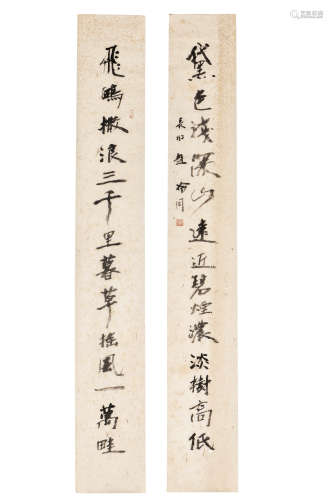 黛色淺深山遠近碧煙濃淡樹高低
飛鴎撒浪三千里暮草搖風一萬畦